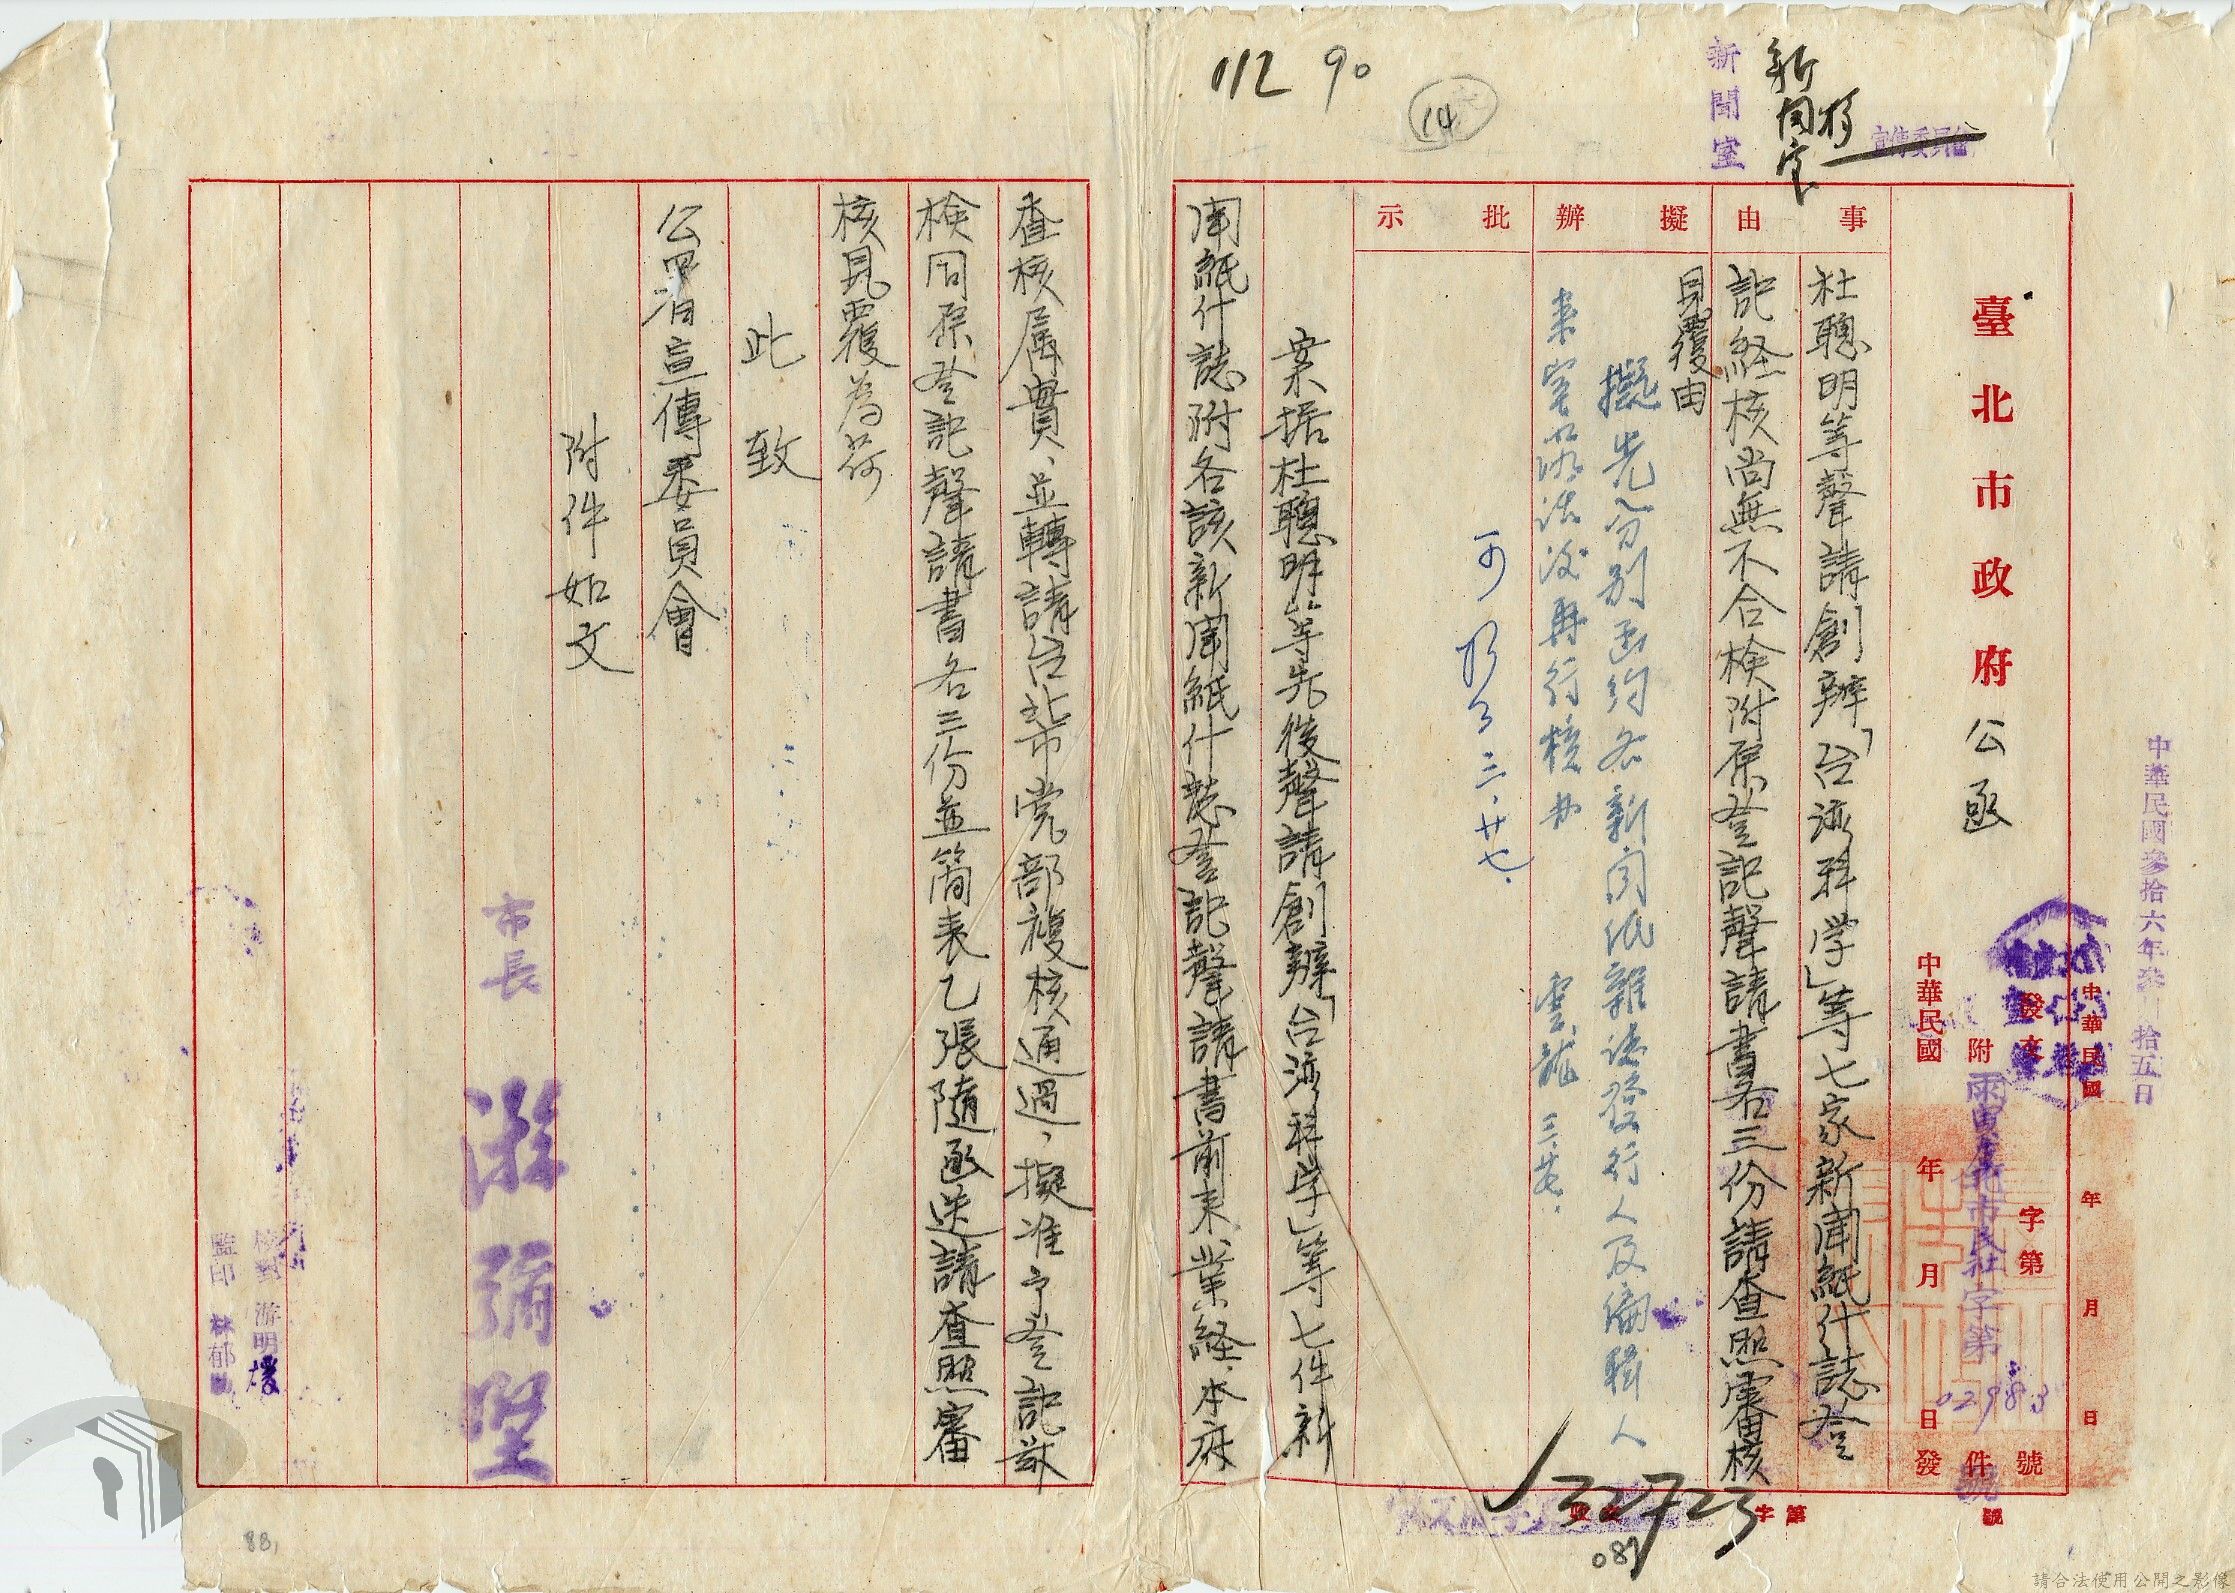 112 90
14
新聞室
新聞室
宣傳委員會
中華民國參拾六年 拾五日
臺北市政府公函
中華民國 年 月 日
發文 字第 號
附 件
市民社字第02983號
中華民國 年 月 日發
事由
杜聰明等聲請創辦「台湾科学」等七家新聞紙什誌登
記経核尚無不合検附原登記聲請書各三份請查照審核
見覆由
擬辦
擬先分別函約各新聞紙雜誌發行人及編輯人
來室 後再行核办 雲龍 三.廿.
批示
可 三.廿七.
案据杜聰明等先後聲請創辦「台湾科学」等七件新
聞紙什誌附各該新聞紙什誌登記聲請書前来、業経本府
查核属實、並轉請台北市党部複核通過,擬准予登記茲
検同原登記聲請書各三份並簡表乙張隨函送請查照審
核見覆為荷
此致
公署宣傳委員會
附件如文
市長 游彌堅
校對 游明
監印 林郁
收文 字第 號
32723
081
88
請合法使用公開之影像